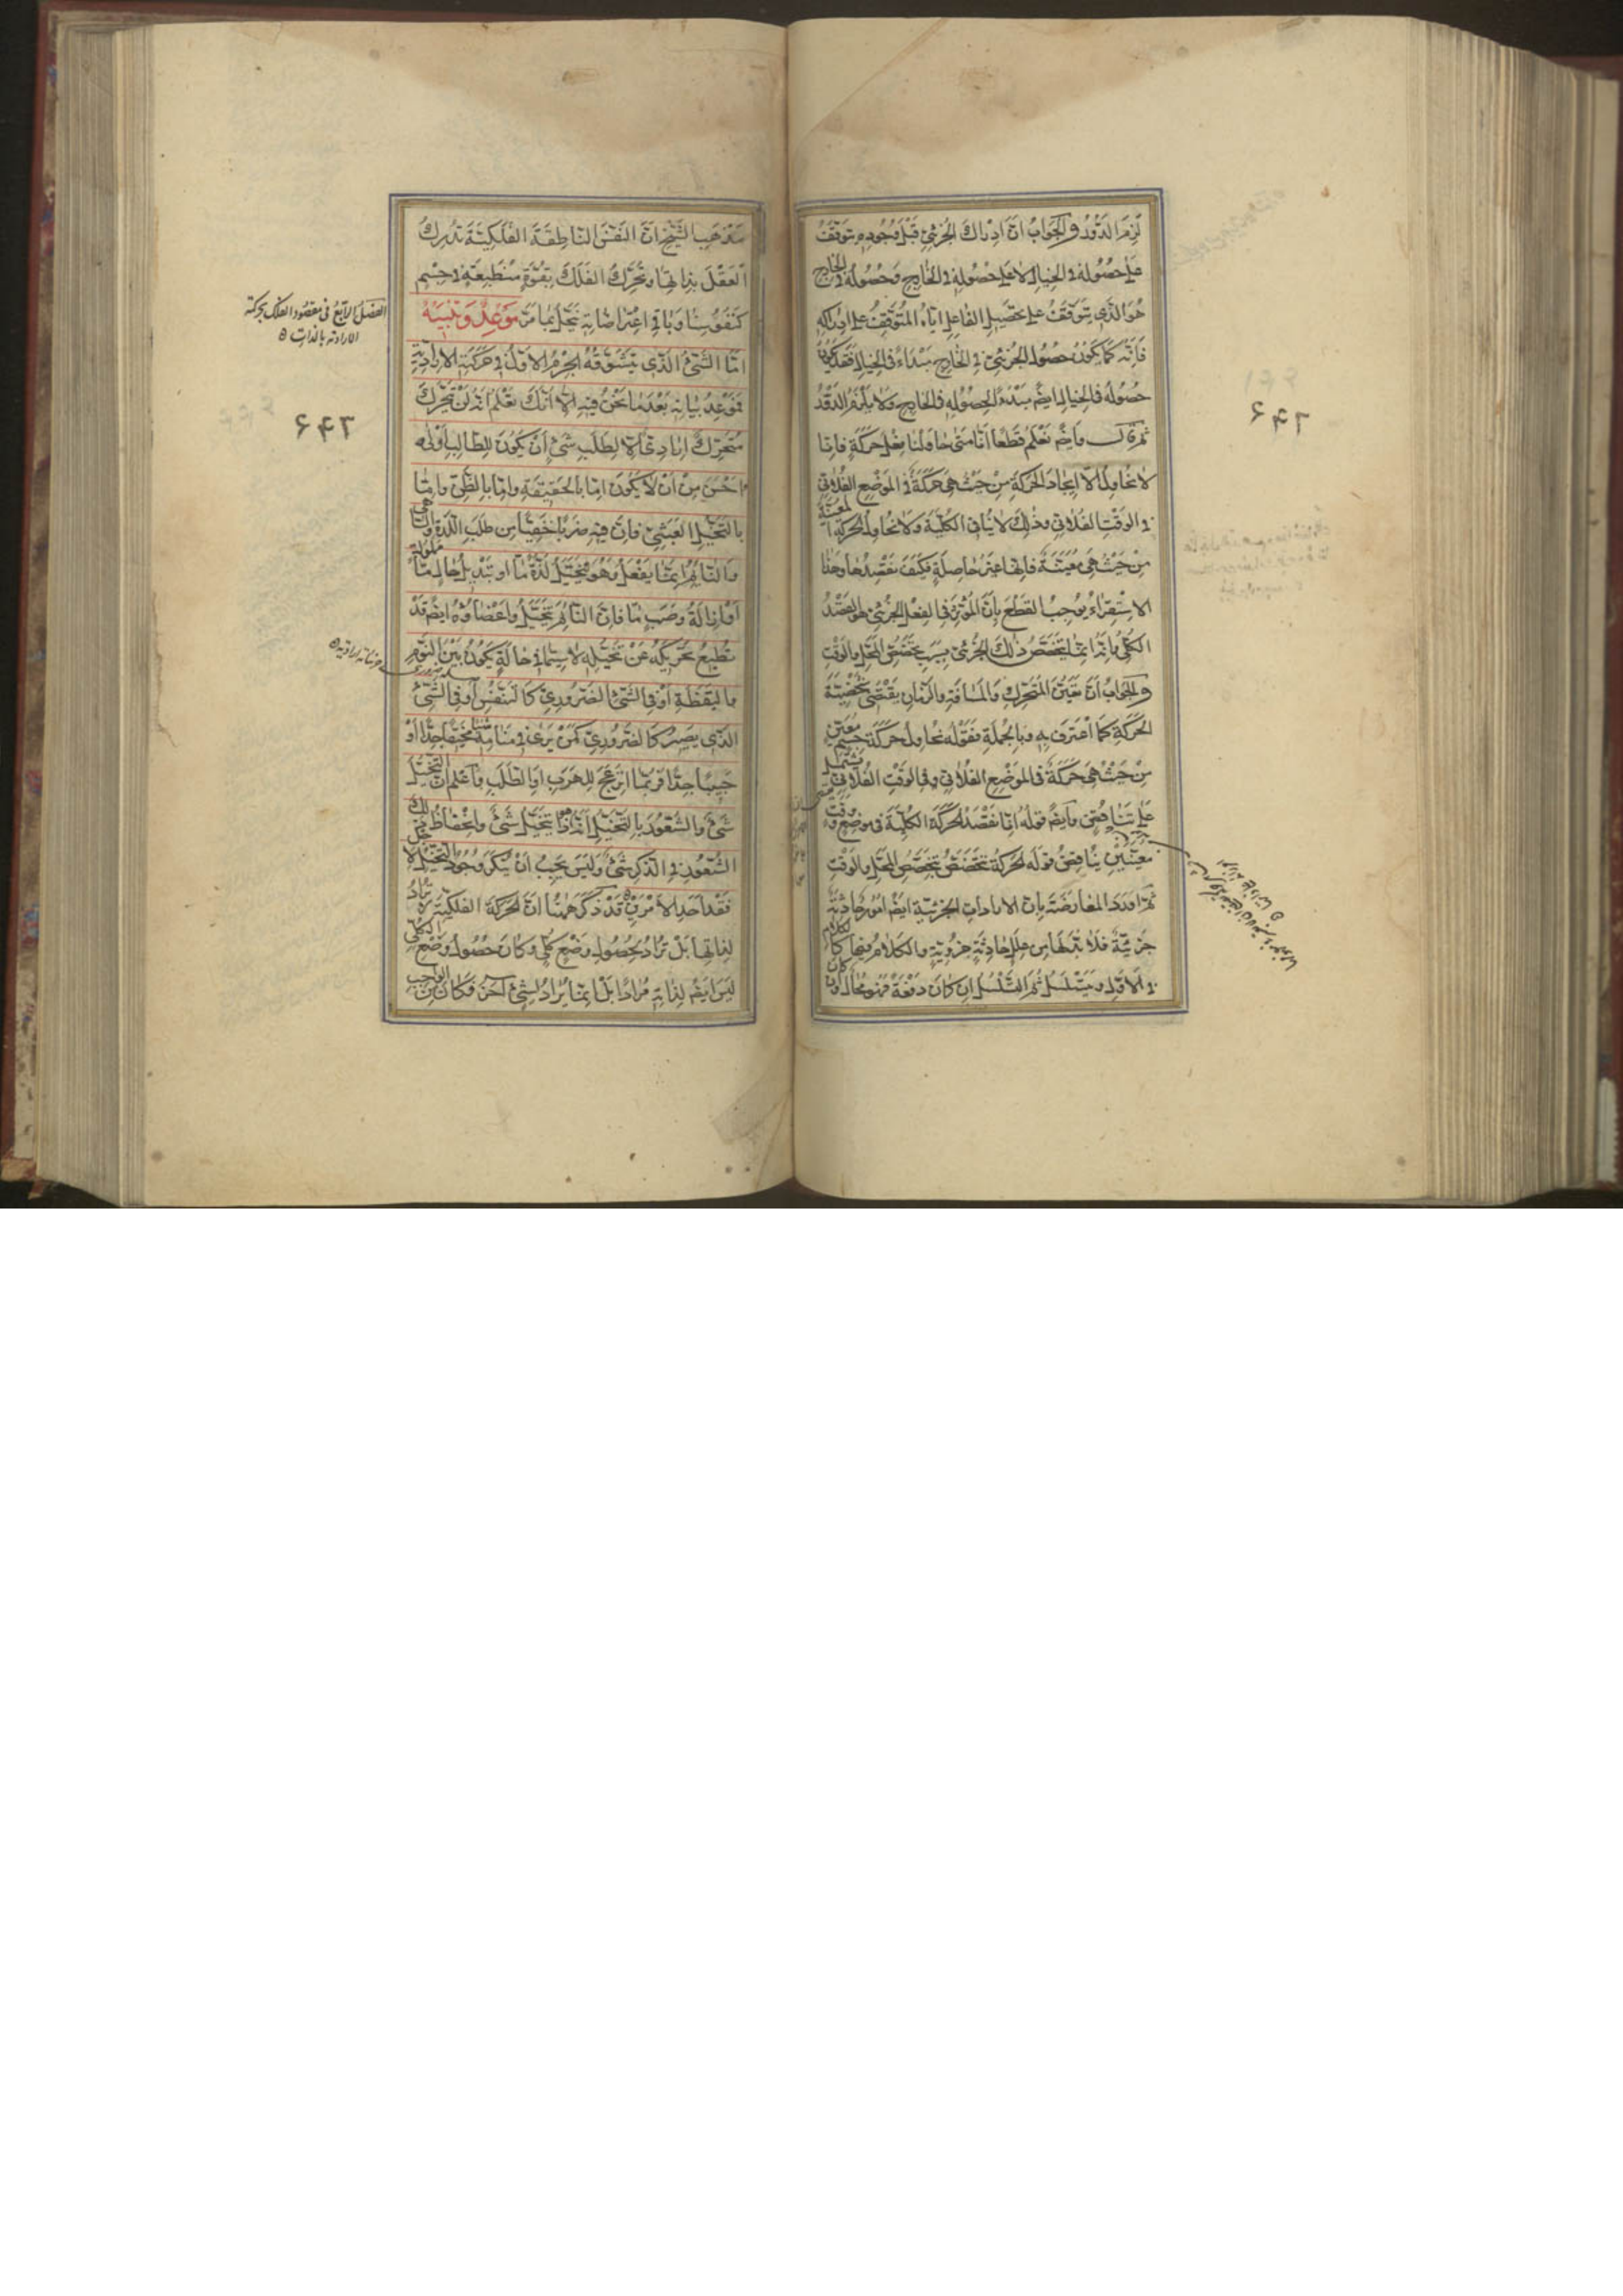 لزم الدور والجواب ان ادراك الجزئي قبل وجوده يتوقف
على حصوله في الخيال لا على حصوله في الخارج وحصوله في الخارج
هو الذي يتوقف على تحصيل الفاعل اياه المتوقف على ادراكه
فانه كما يكون حصول الجزئي في الخارج مبداء في الخيال فقد يكون
حصوله في الخيال ايضم مبدء لحصوله في الخارج ولا يلزم الدور
ثم قال وايضم نعلم قطعا انا متى حاولنا فعل حركة فانا
لا نحاول الا ايجاد الحركة من حيث هي حركة في الموضع الفلاني
في الوقت الفلاني وذلك لا ينافي الكلية ولا نحاول الحركة المعينة
من حيث هي معينة فانها غير حاصلة فكيف نقصدها وهذا
الاستقراء يوجب القطع بان المؤثر في الفعل الجزئي هو القصد
الكلي وانه انما يتخصص ذلك الجزئي بسبب تخصص المحل والوقت
والجواب ان تعين المتحرك والمسافة والزمان يقتضي شخصية
الحركة كما اعترف به وبالجملة فقوله نحاول حركة جسم معين
من حيث هي حركة في الموضع الفلاني وفي الوقت الفلاني يشتمل
على تناقض وايضم قوله انا نقصد الحركة الكلية في موضع ووقت
معينين يناقض قوله الحركة تتخصص بتخصص المحل والوقت
ثم اورد المعارضة بان الارادات الجزئية ايضم امور حادثة
جزئية فلا بد لها من علل حادثة جزوية والكلام فيها كالكلام
في الاول ويتسلسل ثم التسلسل ان كان دفعة فهو محال وان كان
۶۴۲
مذهب الشيخ ان النفس الناطقة الفلكية تدرك
العقل بذاتها وتحرك الفلك بقوة منطبعة في جسم
كنفوسنا وباقي اعتراضاته ينحل بما مر موعد وتنبيه
اما الشئ الذي يتشوقه الجرم الاول في حركته الارادية
فموعد بيانه بعد ما نحن فيه الا انك تعلم انه لن يتحرك
متحرك ارادي الا لطلب شئ ان يكون للطالب اولى
واحسن من ان لا يكون اما بالحقيقة واما بالظن واما
بالتخيل العبثي فان فيه ضربا خفيا من طلب اللذة والساهي
والنائم انما يفعل وهو يتخيل لذة ما او تبديل حال ما مملولة
او ازالة وصب ما فان النائم يتخيل واعضاؤه ايضم قد
تطيع تحريكه عن تخيله لا سيما في حالة يكون بين النوم
واليقظة او في الشئ الضروري كالتنفس او في الشئ
الذي يصير كالضروري كمن يرى في منامه شيئا مخيفا جدا او
حبيبا جدا فربما انزعج للهرب او الطلب واعلم ان التخيل
شئ والشعور بالتخيل انه هوذا يتخيل شئ وانحفاظ ذلك
الشعور في الذكر شئ وليس يجب ان ينكر وجود التخيل لاجل
فقد احد الامرين قد ذكر ههنا ان الحركة الفلكية لا تراد
لذاتها بل تراد لحصول وضع كلي وكان حصول وضع الكلي
ليس ايضم لذاته مرادا بل انما يراد لشئ آخر فكان من الواجب
الفصل الرابع في مقصود الفلك بحركته
الارادية بالذات
۶۴۳